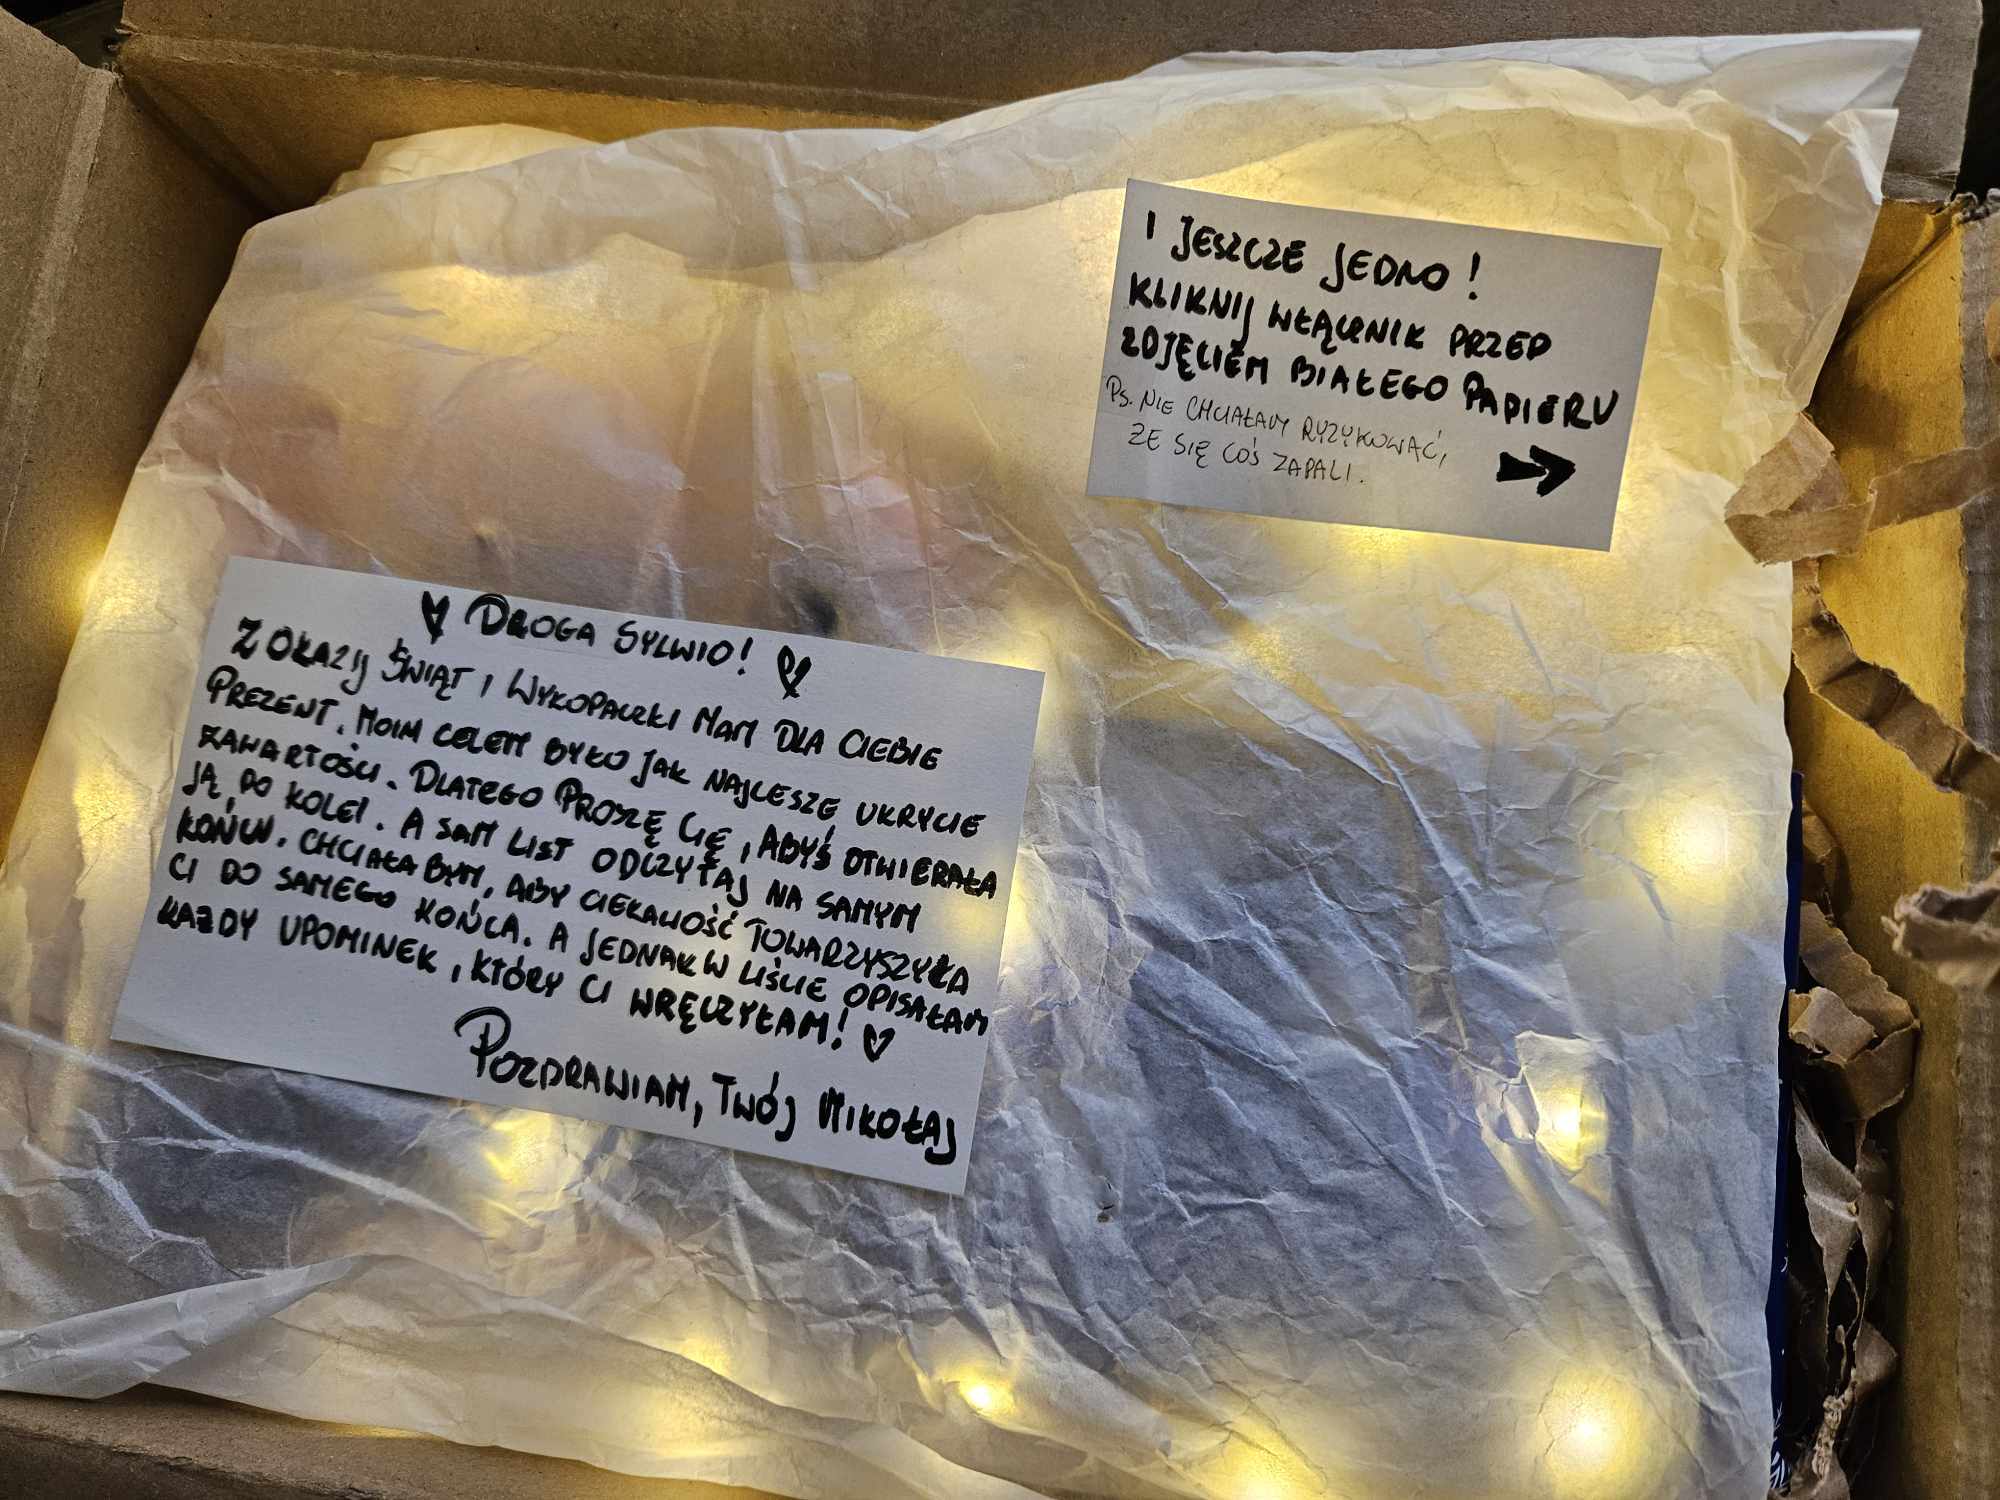 I JESZCZE JEDNO!
KLIKNIJ WŁĄCZNIK PRZED
ZDJĘCIEM BIAŁEGO PAPIERU
PS. NIE CHCIAŁAM RYZYKOWAĆ,
ŻE SIĘ COŚ ZAPALI.
DROGA SYLWIO!
Z OKAZIJ ŚWIĄT I WYKOPACZKI MAM DLA CIEBIE
PREZENT. MOIM CELEM BYŁO JAK NAJLESZE UKRYCIE
ZAWARTOŚCI. DLATEGO PROSZĘ CIĘ, ABYŚ OTWIERAŁA
JĄ PO KOLEI. A SAM LIST ODCZYTAJ NA SAMYM
KOŃCU. CHCIAŁA BYM, ABY CIEKAWOŚĆ TOWARZYSZYŁA
CI DO SAMEGO KOŃCA. A JEDNAK W LIŚCIE OPISAŁAM
KAŻDY UPOMINEK, KTÓRY CI WRĘCZYŁAM!
POZDRAWIAM, TWÓJ MIKOŁAJ